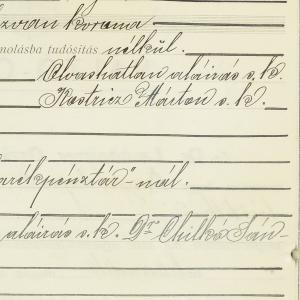 korona
molásba tudósítás nélkül.
Olvashatlan aláirás s. k.
Kostricz Márton s. k.
arékpénztár"-nál.
aláirás s. k. Dr Chilkó Sán-